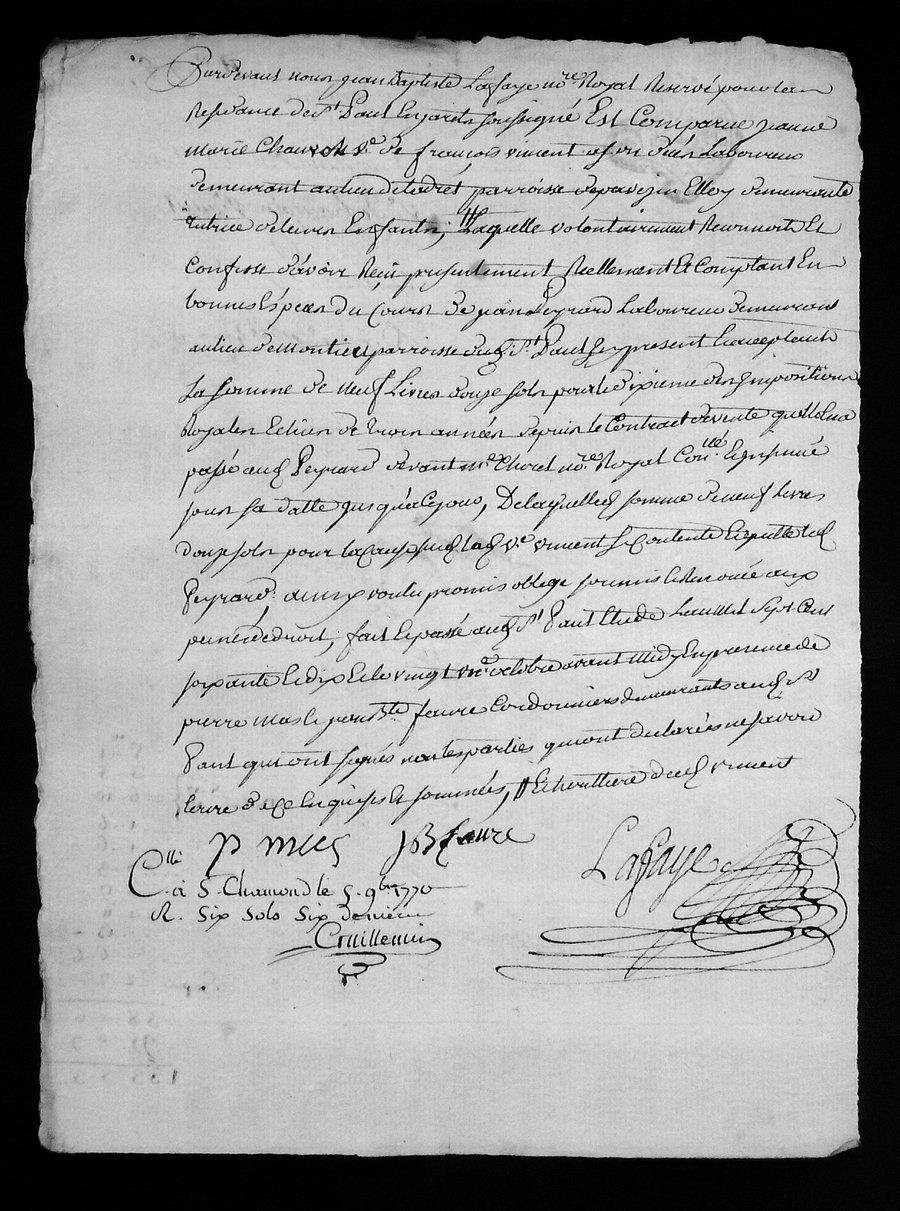 Pardevant nous jean Baptiste Lafaye nre Royal Reservé pour la
Residance de St Paul En jarets soussigné Est Comparue jeanne
Marie Chauvet Ve de françois viment Laboureur
demeurant au lieu de parroisse de pavezin Elle y demeurante
tutrice de leurs Enfants; Laquelle volontairement Reconnoit Et
Confesse d'avoir Reçu presentement Reellement Et Comptant En
bonnes Especes du Cours de jean Peyrard Laboureur demeurant
au lieu de Montieu parroisse dud St Paul Cy present Et acceptant
La somme de neuf Livres douze sols pour le dixieme des Impositions
Royales Echues de trois années depuis le Contract de vente qu'elle lui a
passé aud Peyrard devant Me Choret nre Royal
sous sa datte jusqu'a ce jour, De laquelle somme de neuf Livres
douze sols pour la cause susd lad Ve viment se Contente Et quitte led
Peyrard: ainsy voulu promis oblige soumis Et Renoncé aux
peines de droit; fait Et passé aud St Paul Etude L'an Mil Sept Cent
soixante Et dix Et le vingt octobre avant Midy En presence de
pierre mas Et jean Bte faure Cordonniers demeurants aud St
Paul qui ont signés non les parties qui ont declarées ne savoir
Ecrire de ce Enquises Et sommées, // Et heritiere dud viment
P mas JB faure
Lafaye
Cllé
à St Chamond le 5. 9bre 1770
R. Six Sols Six deniers
Couillemin